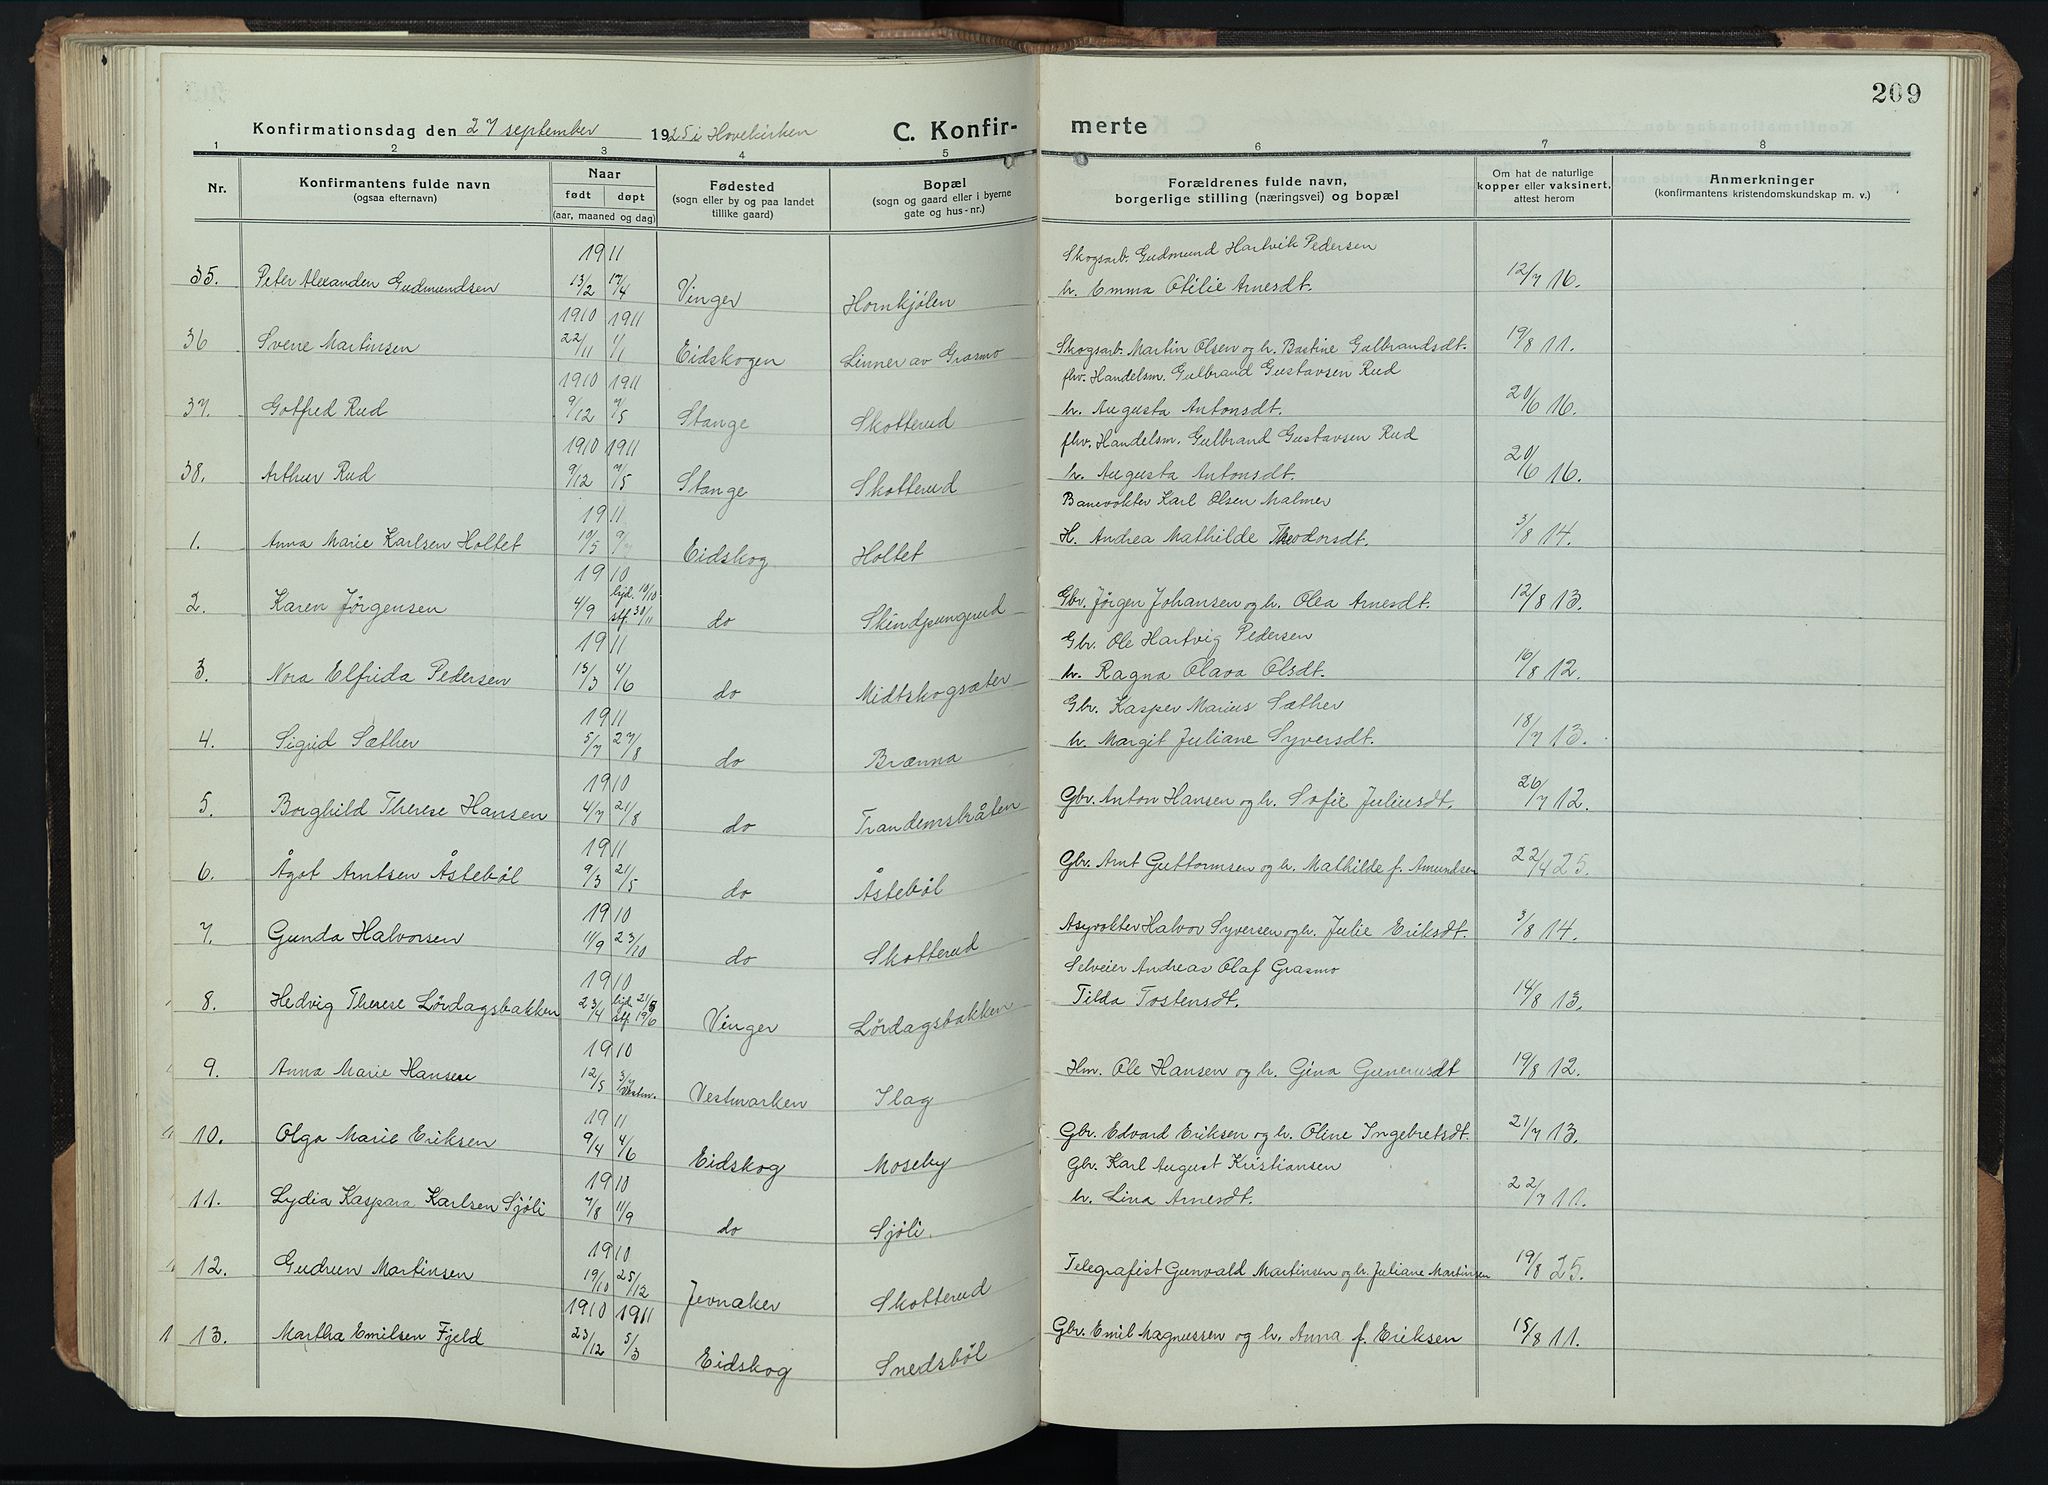 209
Konfirmationsdag den 27 september 1925 i Hovekirken C. Konfir- merte
1 2 3 4 5 6 7 8
Nr. Konfirmantens fulde navn (ogsaa efternavn) Naar født døpt (aar, maaned og dag) Fødested (sogn eller by og paa landet tillike gaard) Bopæl (sogn og gaard eller i byerne gate og hus-nr.) Forældrenes fulde navn, borgerlige stilling (næringsvei) og bopæl Om hat de naturlige kopper eller vaksinert, attest herom Anmerkninger (konfirmantens kristendomskundskap m. v.)
1911 Skogsarb. Gudmund Hartvik Pedersen
35. Peter Alexander Gudmundsen 13/2 17/4 Vinger Hornkjølen h. Emma Otilie Arnesdt. 12/7 16.
1910 1911
36 Svene Martinsen 22/11 1/1 Eidskogen Linner av Grasmo Skogsarb. Martin Olsen og h. Bastine Gulbrandsdt. 19/8 11.
1910 1911 fhv. Handelsm. Gulbrand Gustavsen Rud
37. Gotfred Rud 9/12 7/5 Stange Skotterud h. Augusta Antonsdt. 20/6 16.
1910 1911 fhv. Handelsm. Gulbrand Gustavsen Rud
38. Arthur Rud 9/12 7/5 Stange Skotterud h. Augusta Antonsdt. 20/6 16.
1911 Banevokter Karl Olsen Malmer
1. Anna Marie Karlsen Holtet 19/5 9/7 Eidskog Holtet H. Andrea Mathilde Theodorsdt. 3/8 14.
1910 hjd. 10/10
2. Karen Jørgensen 4/9 stf. 30/11 do Skindpungrud Gbr. Jørgen Johansen og h. Olea Arnesdt. 12/8 13.
1911 Gbr. Ole Hartvig Pedersen
3. Nora Elfrida Pedersen 15/3 4/6 do Midtskogsæter h. Ragna Olava Olsdt. 16/8 12.
1911 Gbr. Kasper Marius Sæther
4. Sigrid Sæther 5/7 27/8 do Brænna h. Margit Juliane Syversdt. 18/7 13.
1910
5. Borghild Therese Hansen 4/7 21/8 do Trandemsbråten Gbr. Anton Hansen og h. Sofie Juliusdt. 26/7 12.
1911
6. Ågot Arntsen Åstebøl 9/3 21/5 do Åstebøl Gbr. Arnt Guttormsen og h. Mathilde f. Amundsen 22/4 25.
1910
7. Gunda Halvorsen 11/9 23/10 do Skotterud Asyvokter Halvor Syversen og h. Julie Eriksdt. 3/8 14.
1910 hjd. 21/5 Selveier Andreas Olaf Grasmo
8. Hedvig Therese Lørdagsbakken 23/4 stf. 19/6 Vinger Lørdagsbakken Tilda Tostensdt. 14/8 13
1910
9. Anna Marie Hansen 12/5 3/7 Vestm. Vestmarken Ilag Hm. Ole Hansen og h. Gina Gunerusdt 19/8 12.
1911
10. Olga Marie Eriksen 9/4 4/6 Eidskog Moseby Gbr. Edvard Eriksen og h. Oline Ingebretsdt. 21/7 13.
1910 Gbr. Karl August Kristiansen
11. Lydia Kaspara Karlsen Sjøli 7/8 11/9 do Sjøli. h. Lina Arnesdt. 22/7 11.
1910
12. Gudrun Martinsen 19/10 25/12 Jevnaker Skotterud Telegrafist Gunvald Martinsen og h. Juliane Martinsen 19/8 25.
1910 1911
1 13. Martha Emilsen Fjeld 23/12 5/3 Eidskog Snedsbøl Gbr. Emil Magnussen og h. Anna f. Eriksen 15/8 11.